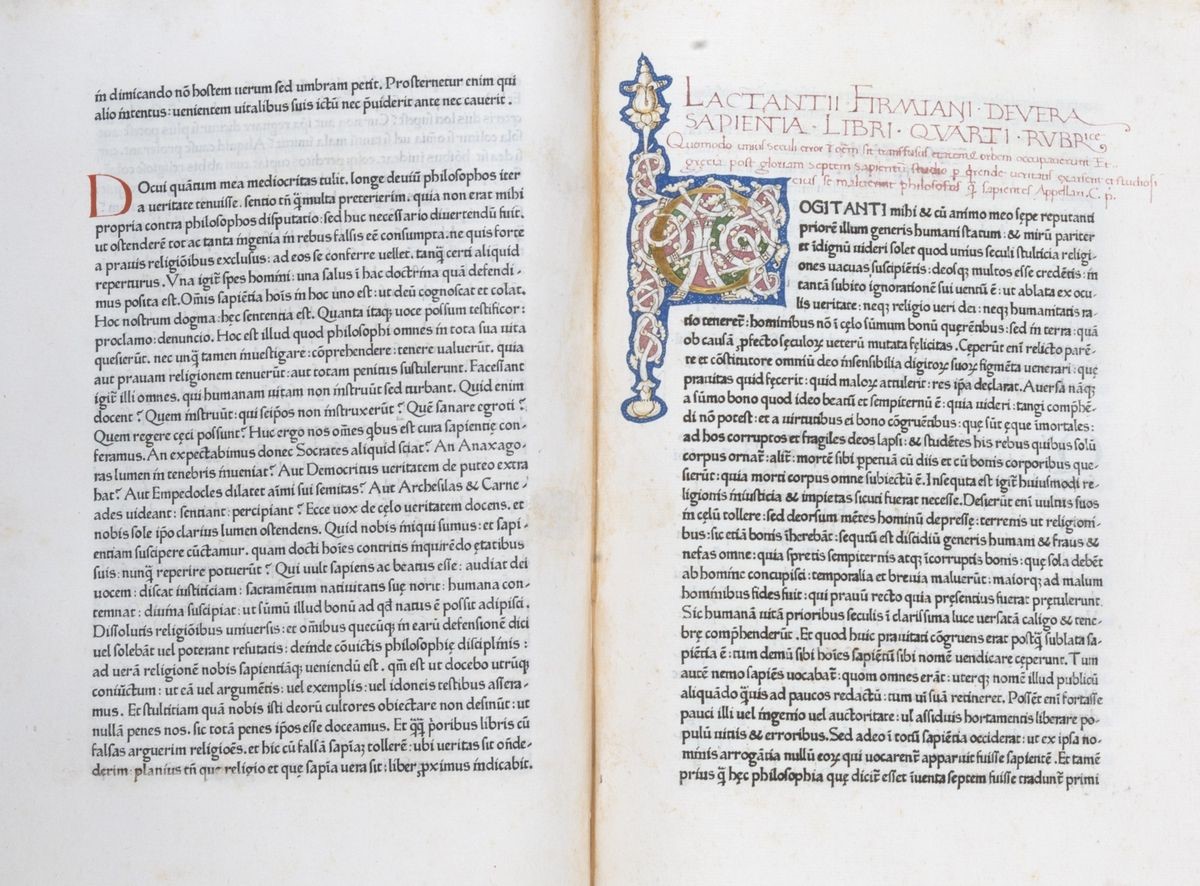 in dimicando nō hostem uerum sed umbram petit. Prosternetur enim qui
alio intentus: uenientem uitalibus suis ictū nec p̄uiderit ante nec cauerit.
Docui quātum mea mediocritas tulit. longe deuiū philosophos iter
a ueritate tenuisse. sentio tn̄ q̄ multa preterierim. quia non erat mihi
propria contra philosophos disputatio: sed huc necessario diuertendū fuit.
ut ostenderē tot ac tanta ingenia in rebus falsis eē consumpta. ne quis forte
a prauis religiōibus exclusus: ad eos se conferre uellet. tanq̄ certi aliquid
reperturus. Vna igit̄ spes homini: una salus ī hac doctrina quā defendi-
mus posita est. Om̄is sapiētia hois in hoc uno est: ut deū cognoscat et colat.
Hoc nostrum dogma: hęc sententia est. Quanta itaq; uoce possum testificor:
proclamo: denuncio. Hoc est illud quod philosophi omnes in tota sua uita
quesierūt. nec unq̄ tamen inuestigare: cōprehendere: tenere ualuerūt. quia
aut prauam religionem tenuerūt: aut totam penitus sustulerunt. Facessant
igit̄ illi omnes. qui humanam uitam non instruūt sed turbant. Quid enim
docent? Quem instruūt: qui seip̄os non instruxerūt? Quē sanare ęgroti?
Quem regere cęci possunt? Huc ergo nos om̄es q̄bus est cura sapientię con-
feramus. An expectabimus donec Socrates aliquid sciat? An Anaxago-
ras lumen in tenebris inueniat? Aut Democritus ueritatem de puteo extra
hat? Aut Empedocles dilatet aīmi sui semitas? Aut Archesilas & Carne-
ades uideant: sentiant: percipiant? Ecce uox de cęlo ueritatem docens. et
nobis sole ip̄o clarius lumen ostendens. Quid nobis iniqui sumus: et sapi-
entiam suscipere cūctamur. quam docti hoīes contritis inquirēdo ętatibus
suis: nunq̄ reperire potuerūt? Qui uult sapiens ac beatus esse: audiat dei
uocem: discat iusticiam: sacramētum natiuitatis suę norit: humana con-
temnat: diuina suscipiat: ut sūmū illud bonū ad qd̄ natus ē possit adipisci.
Dissolutis religiōibus uniuersis: et om̄ibus quecūq; in earū defensionē dici
uel solebāt uel poterant refutatis: deinde cōuictis philosophię disciplinis:
ad uerā religionē nobis sapientiāq; ueniendū est. qm̄ est ut docebo utrūq;
coniūctum: ut eā uel argumētis: uel exemplis: uel idoneis testibus assera-
mus. Et stultitiam quā nobis isti deorū cultores obiectare non desinūt: ut
nullā penes nos. sic totā penes ip̄os esse doceamus. Et q̄q̄ p̄oribus libris cū
falsas arguerim religiōes. et hic cū falsā sapīaꝫ tollerē: ubi ueritas sit onde-
derim: planius tn̄ que religio et quę sapīa uera sit: liber ꝓximus indicabit.
LACTANTII · FIRMIANI · DE VERA
SAPIENTIA · LIBRI · QVARTI · RVBRice
Quomodo unius seculi error orbem occupauerunt Et
post gloriam septem sapientū studio
se maluerint philosophos q̄ sapientes Appellari. C. p.
COGITANTI mihi & cū animo meo sępe reputanti
priorē illum generis humani statum: & mirū pariter
et īdignū uideri solet quod unius seculi stulticia religi-
ones uacuas suscipiētis: deosq; multos esse credētis: in
tantā subito ignorationē sui uentū ē: ut ablata ex ocu-
lis ueritate: neq; religio ueri dei: neq; humanitatis ra-
tio tenereť: hominibus nō ī cęlo sūmum bonū querētibus: sed in terra: quā
ob causā ꝓfecto sęculoꝝ ueterū mutata fęlicitas. Cęperūt enī relicto parē-
te et cōstitutore omniū deo insensibilia digitoꝝ suoꝝ figmēta uenerari: quę
prauitas quid fęcerit: quid maloꝝ attulerit: res ip̄a declarat. Auersa nāq;
a sūmo bono quod ideo beatū et sempiternū ē: quia uideri: tangi comp̄hē-
di nō potest: et a uirtutibus ei bono cōgruētibus: quę sūt ęque īmortales:
ad hos corruptos et fragiles deos lapsi: & studētes his rebus quibus solū
corpus ornat̄: alit̄: mortē sibi ꝑpetuā cū diis et cū bonis corporibus que-
sierūt: quia morti corpus omne subiectū ē. Insequta est igit̄ huiusmodi re-
ligionis iniusticia & impietas sicuti fuerat necesse. Desierūt enī uultus suos
in cęlū tollere: sed deorsum mētes hominū depressę: terrenis ut religioni-
bus: sic etiā bonis īherebāt: sequtū est discidiū generis humani & fraus &
nefas omne: quia spretis sempiternis atq; īcorruptis bonis: quę sola debēt
ab homine concupisci: temporalia et breuia maluerūt: maiorq; ad malum
hominibus fides fuit: qui prauū recto quia pręsentius fuerat pretulerunt.
Sic humanā uitā prioribus seculis ī clarissima luce uersatā caligo & tene-
brę comp̄henderūt. Et quod huic prauitati cōgruens erat postq̄ sublata sa-
piētia ē: tum demū sibi hoīes sapiētū sibi nomē uendicare cęperunt. Tum
autē nemo sapiēs uocabat̄: quom omnes erāt: uterq; nomē illud publicū
aliquādo q̄uis ad paucos redactū: tum uī suā retineret. Possēt enī fortasse
pauci illi uel ingenio uel auctoritate: uľ assiduis hortamentis liberare po-
pulū uitiis & erroribus. Sed adeo ī totū sapiētia occiderat: ut ex ipsa no-
minis arrogātia nullū eoꝝ qui uocarent̄ apparuit fuisse sapientē. Et tamē
prius q̄ hęc philosophia quę dicit̄ esset īuenta septem fuisse tradunt̄ primi